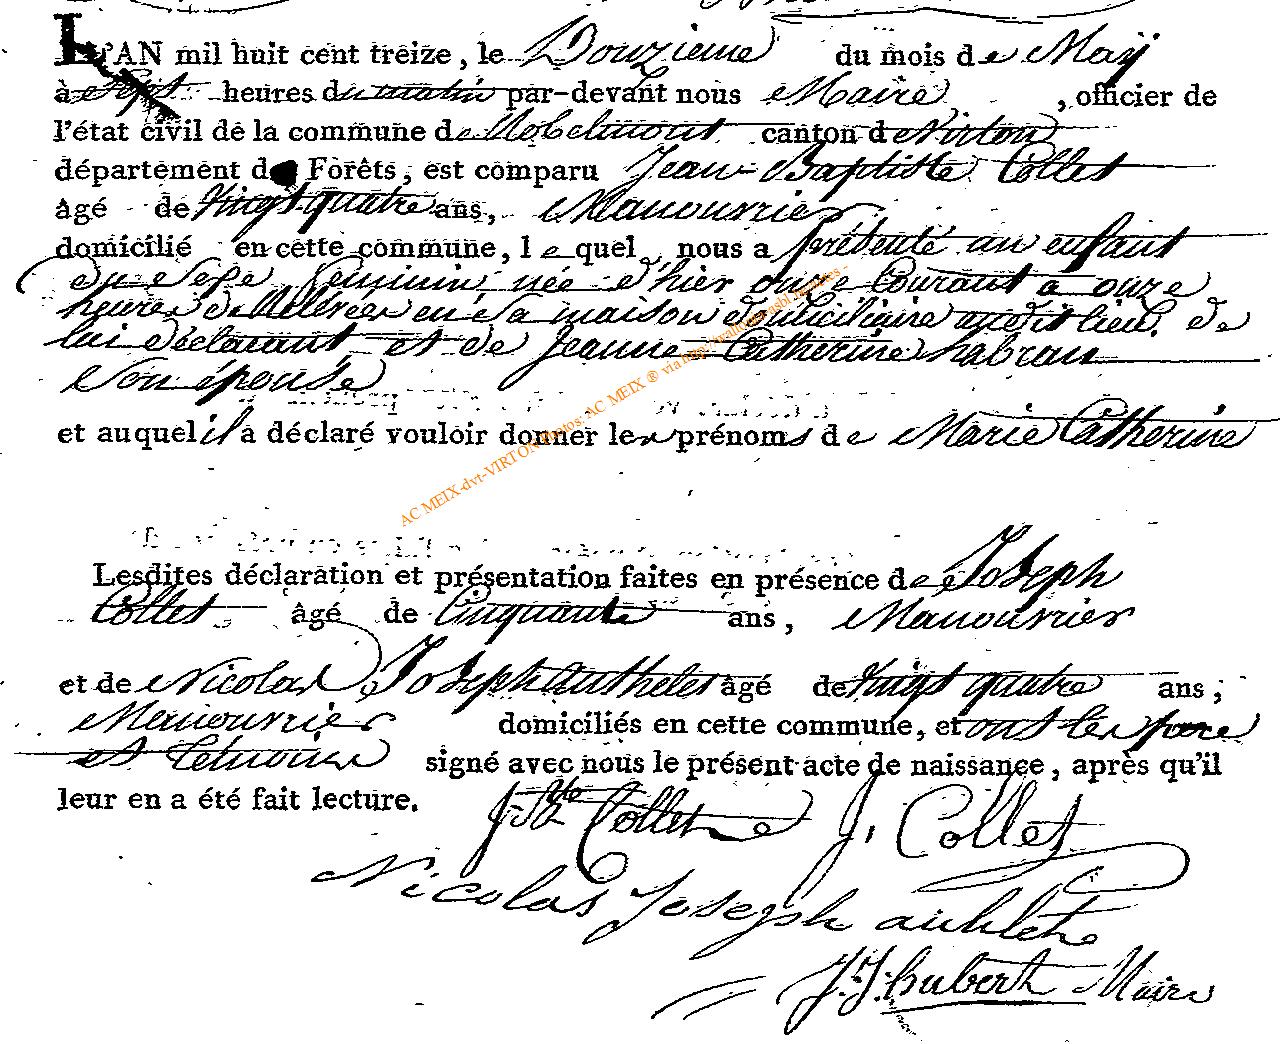 L'AN mil huit cent treize, le Douzieme du mois de May
à Sept heures du matin par-devant nous Maire, officier de
l'état civil de la commune de Robelmont canton de Virton
département des Forêts, est comparu Jean-Baptiste Collet
âgé de Vingt quatre ans, Manouvrier
domicilié en cette commune, lequel nous a présenté un enfant
du Sexe feminin née d'hier onze Courant a onze
heures de en Sa maison domiciliaire audit lieu, de
lui déclarant et de Jeanne Catherine habran
Son épouse
et auquel il a déclaré vouloir donner les prénoms de Marie Catherine
Lesdites déclaration et présentation faites en présence de Joseph
Collet âgé de Cinquante ans, Manouvrier
et de Nicolas Joseph authelet âgé de Vingt quatre ans,
Manouvrier domiciliés en cette commune, et ont les pere
et temoins signé avec nous le présent acte de naissance, après qu'il
leur en a été fait lecture.
J. Bte Collet J. Collet
Nicolas Joseph
J. J. hubert Maire
AC MEIX-dvt-VIRTON photos. AC MEIX ® via